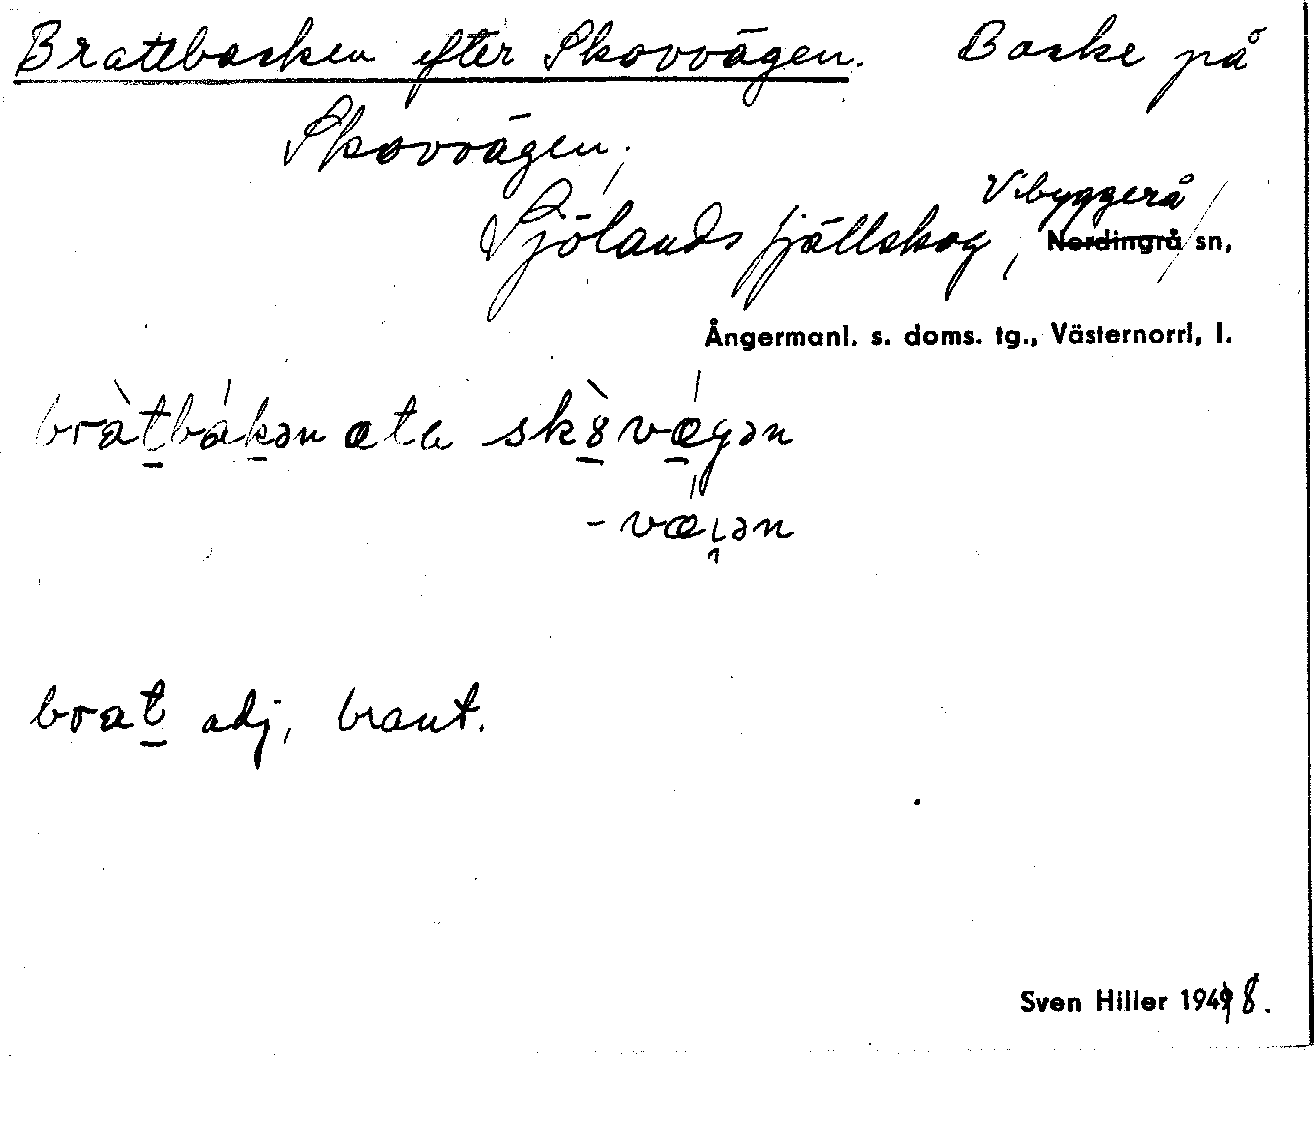 Brattbacken efter Skovvägen. Backe på
Skovvägen,
Sjölands fjällskog, Vibyggerå
Nordingrå sn,
Ångermanl. s. doms. tg., Västernorrl, l.
bràt̠bák̠ən ætɐ skò̠vǽ̠gən
- vǽi̯ən
brat̠ adj, brant.
Sven Hiller 1948.